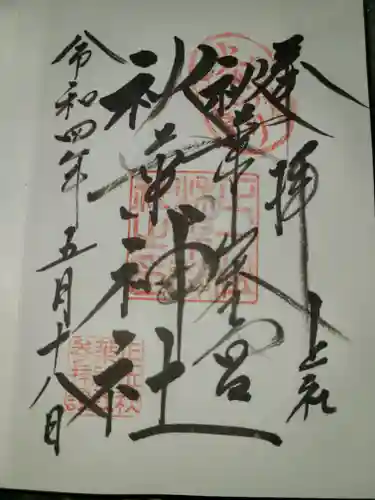 奉拝
上社
秋葉山本宮
秋葉神社
令和四年五月十八日